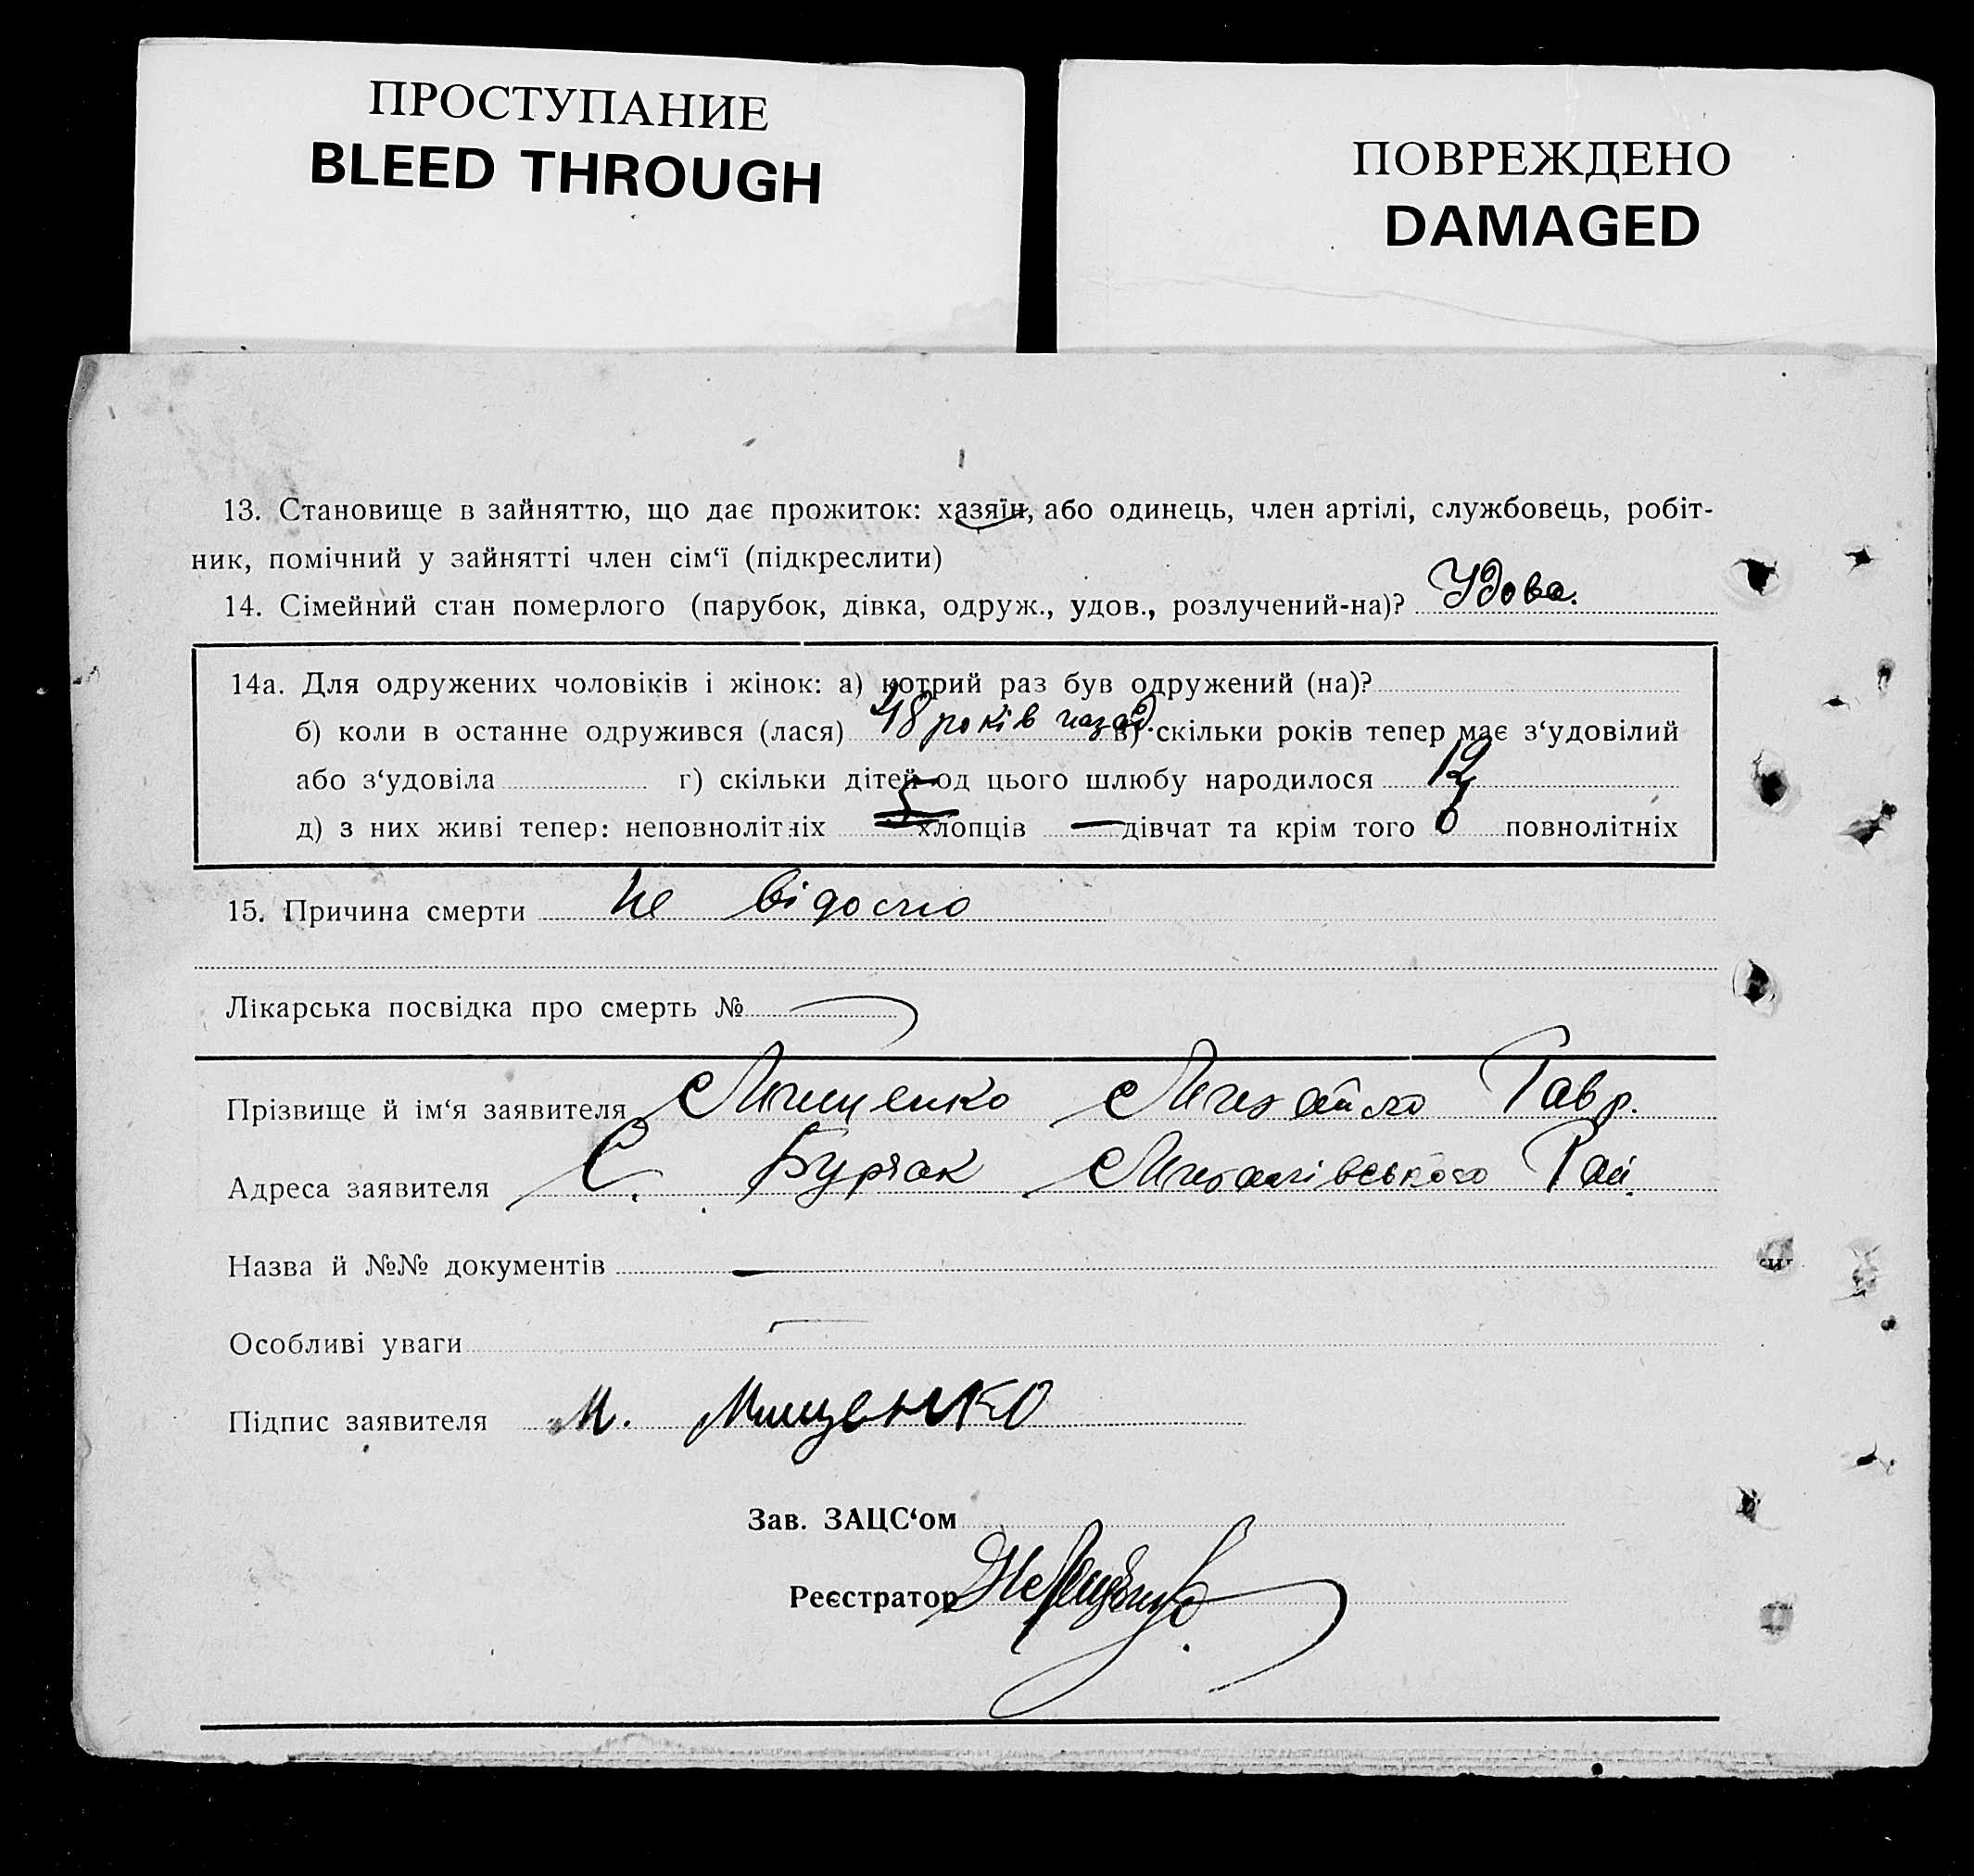 ПРОСТУПАНИЕ
BLEED THROUGH
ПОВРЕЖДЕНО
DAMAGED
13. Становище в зайняттю, що дає прожиток: хазяїн, або одинець, член артілі, службовець, робіт-
ник, помічний у зайнятті член сім‘ї (підкреслити)
14. Сімейний стан померлого (парубок, дівка, одруж., удов., розлучений-на)? Удова.
14а. Для одружених чоловіків і жінок: а) котрий раз був одружений (на)?
б) коли в останне одружився (лася) 48 років назад. в) скільки років тепер має з‘удовілий
або з‘удовіла г) скільки дітей од цього шлюбу народилося 12
д) з них живі тепер: неповнолітніх хлопців — дівчат та крім того повнолітніх
15. Причина смерти не відомо
Лікарська посвідка про смерть №
Прізвище й ім‘я заявителя Мищенко Михайло Гавр.
Адреса заявителя С. Бурчак Михайлівського Рай.
Назва й №№ документів —
Особливі уваги —
Підпис заявителя М. Мищенко
Зав. ЗАЦС‘ом
Реєстратор